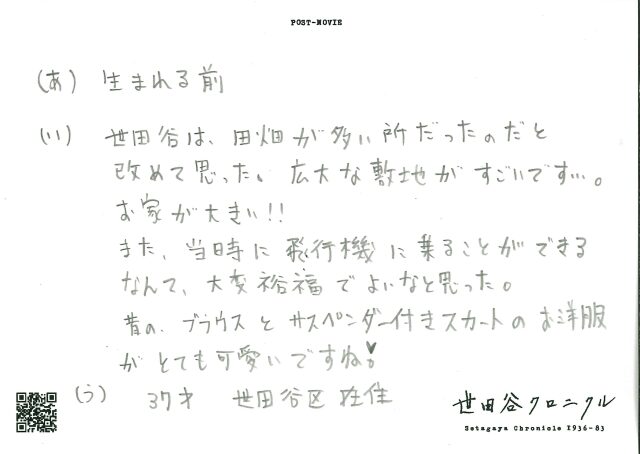 POST-MOVIE
(あ) 生まれる前
(い) 世田谷は、田畑が多い所だったのだと
改めて思った。広大な敷地がすごいですい。
お家が大きい!!
また、当時に飛行機に乗ることができる
なんて、大変裕福でよいなと思った。
昔の、ブラウスとサスペンダー付きスカートのお洋服
がとても可愛いですね♥
(う) 37才 世田谷区在住
世田谷クロニクル
Setagaya Chronicle 1936-83